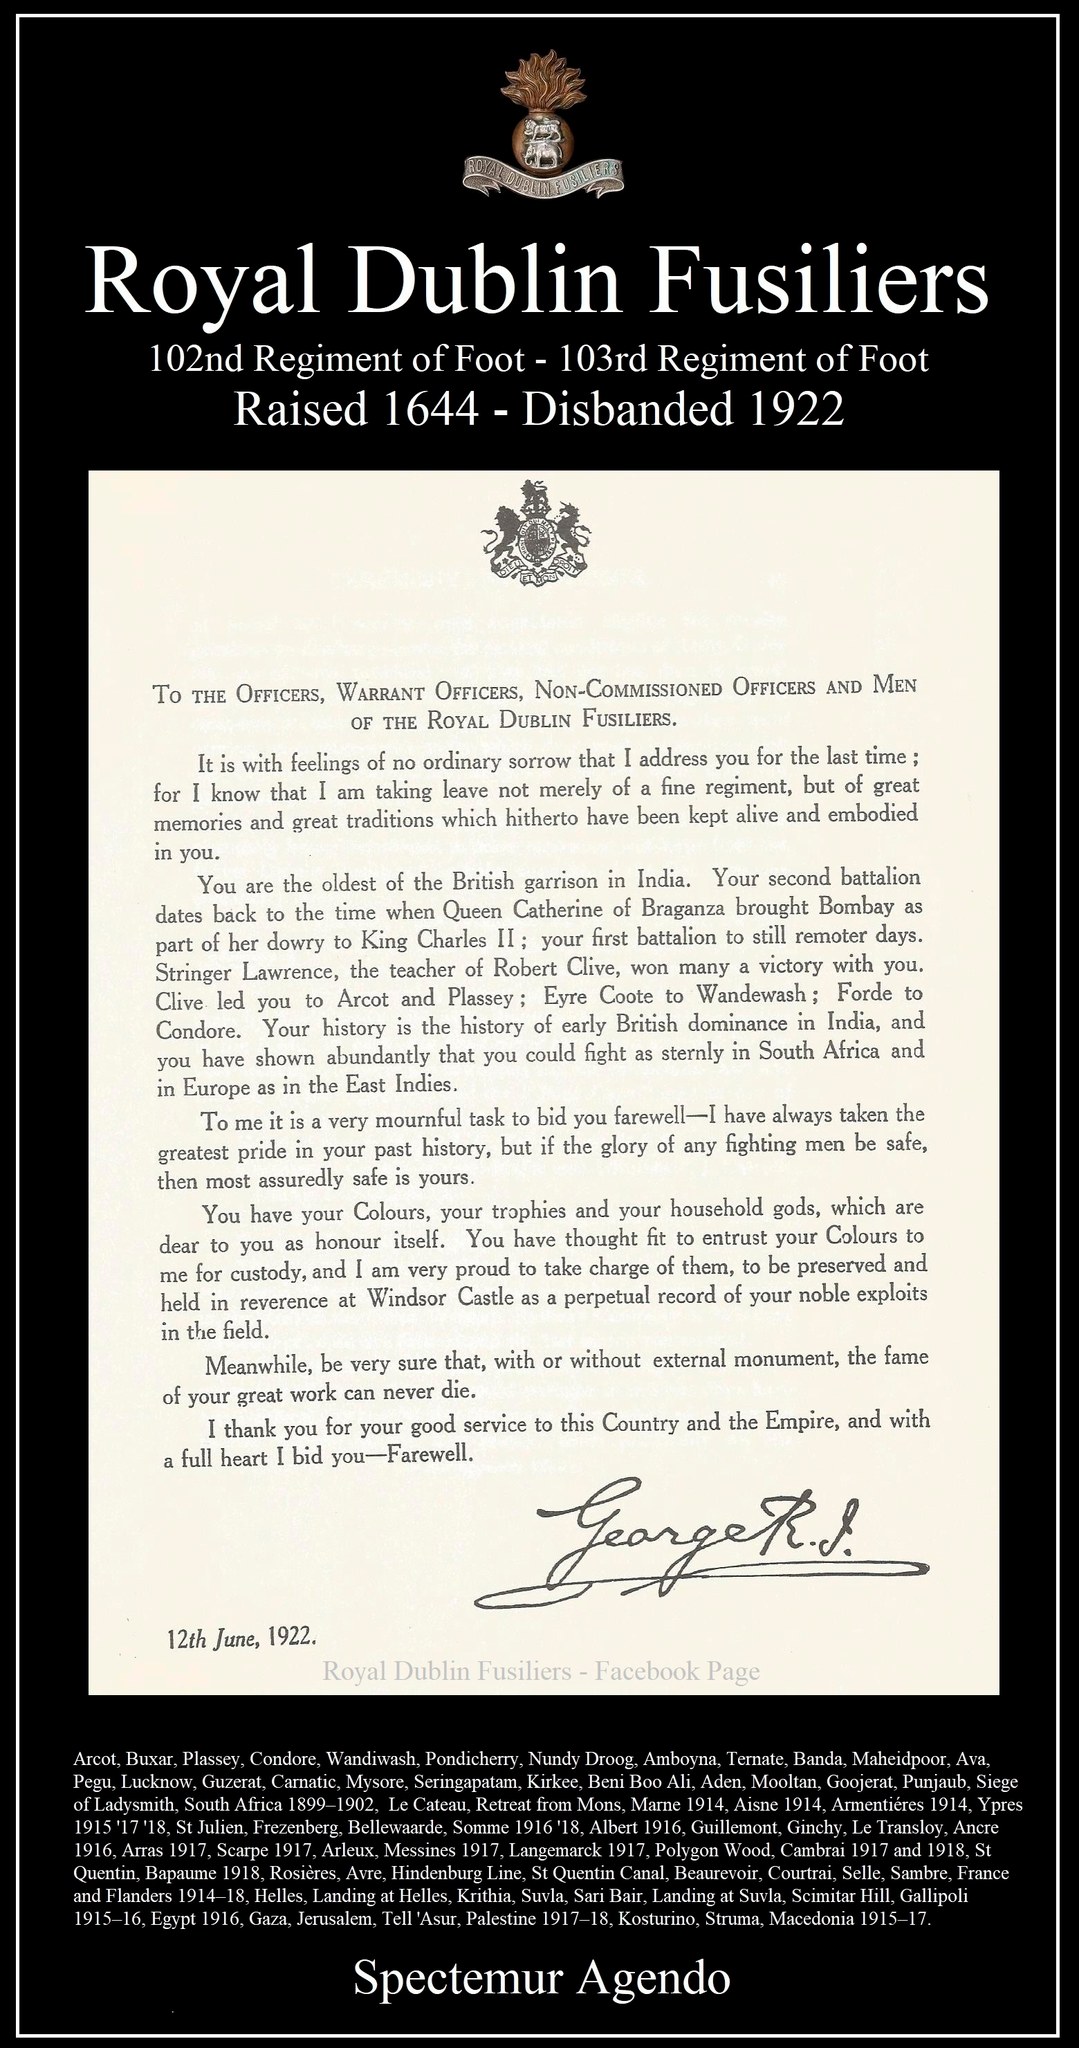 ROYAL DUBLIN FUSILIERS
Royal Dublin Fusiliers
102nd Regiment of Foot - 103rd Regiment of Foot
Raised 1644 - Disbanded 1922
To the Officers, Warrant Officers, Non-Commissioned Officers and Men
of the Royal Dublin Fusiliers.
It is with feelings of no ordinary sorrow that I address you for the last time ;
for I know that I am taking leave not merely of a fine regiment, but of great
memories and great traditions which hitherto have been kept alive and embodied
in you.
You are the oldest of the British garrison in India. Your second battalion
dates back to the time when Queen Catherine of Braganza brought Bombay as
part of her dowry to King Charles II ; your first battalion to still remoter days.
Stringer Lawrence, the teacher of Robert Clive, won many a victory with you.
Clive led you to Arcot and Plassey ; Eyre Coote to Wandewash ; Forde to
Condore. Your history is the history of early British dominance in India, and
you have shown abundantly that you could fight as sternly in South Africa and
in Europe as in the East Indies.
To me it is a very mournful task to bid you farewell—I have always taken the
greatest pride in your past history, but if the glory of any fighting men be safe,
then most assuredly safe is yours.
You have your Colours, your trophies and your household gods, which are
dear to you as honour itself. You have thought fit to entrust your Colours to
me for custody, and I am very proud to take charge of them, to be preserved and
held in reverence at Windsor Castle as a perpetual record of your noble exploits
in the field.
Meanwhile, be very sure that, with or without external monument, the fame
of your great work can never die.
I thank you for your good service to this Country and the Empire, and with
a full heart I bid you—Farewell.
George R.I.
12th June, 1922.
Royal Dublin Fusiliers - Facebook Page
Arcot, Buxar, Plassey, Condore, Wandiwash, Pondicherry, Nundy Droog, Amboyna, Ternate, Banda, Maheidpoor, Ava,
Pegu, Lucknow, Guzerat, Carnatic, Mysore, Seringapatam, Kirkee, Beni Boo Ali, Aden, Mooltan, Goojerat, Punjaub, Siege
of Ladysmith, South Africa 1899–1902, Le Cateau, Retreat from Mons, Marne 1914, Aisne 1914, Armentiéres 1914, Ypres
1915 '17 '18, St Julien, Frezenberg, Bellewaarde, Somme 1916 '18, Albert 1916, Guillemont, Ginchy, Le Transloy, Ancre
1916, Arras 1917, Scarpe 1917, Arleux, Messines 1917, Langemarck 1917, Polygon Wood, Cambrai 1917 and 1918, St
Quentin, Bapaume 1918, Rosières, Avre, Hindenburg Line, St Quentin Canal, Beaurevoir, Courtrai, Selle, Sambre, France
and Flanders 1914–18, Helles, Landing at Helles, Krithia, Suvla, Sari Bair, Landing at Suvla, Scimitar Hill, Gallipoli
1915–16, Egypt 1916, Gaza, Jerusalem, Tell 'Asur, Palestine 1917–18, Kosturino, Struma, Macedonia 1915–17.
Spectemur Agendo